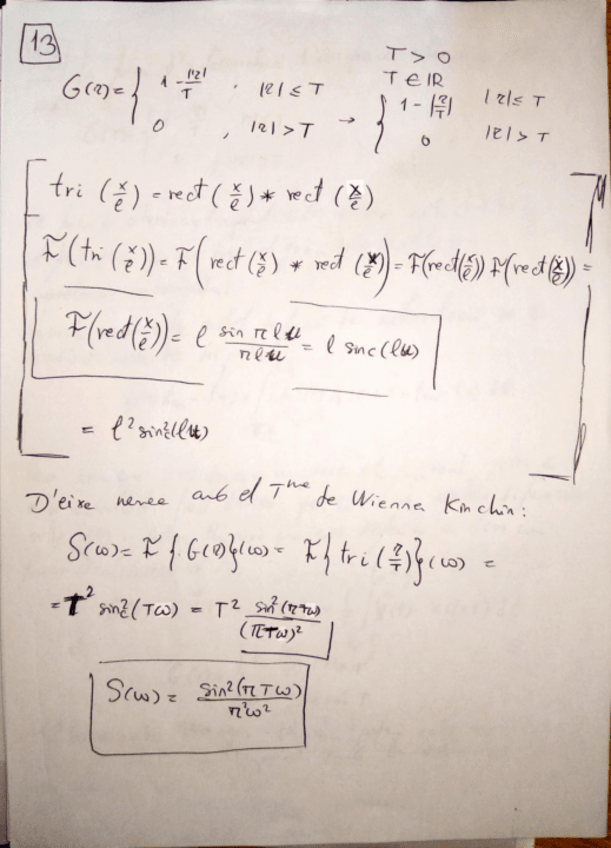 13
T > 0
T ∈ ℝ
G(τ) = { 1 - |τ|/T , |τ| ≤ T
0 , |τ| > T
→ { 1 - |τ/T| |τ| ≤ T
0 |τ| > T
tri (x/ℓ) = rect (x/ℓ) * rect (x/ℓ)
F(tri (x/ℓ)) = F( rect (x/ℓ) * rect (x/ℓ)) = F(rect(x/ℓ)) F(rect(x/ℓ)) =
F(rect(x/ℓ)) = ℓ sin πℓu / πℓu = ℓ sinc(ℓu)
= ℓ² sinc²(ℓu)
D'eixe amb el Tma de Wienna Kinchin:
S(ω) = F{G(τ)}(ω) = F{tri(τ/T)}(ω) =
= T² sinc²(Tω) = T² sin²(πTω) / (πTω)²
S(ω) = sin²(πTω) / π²ω²